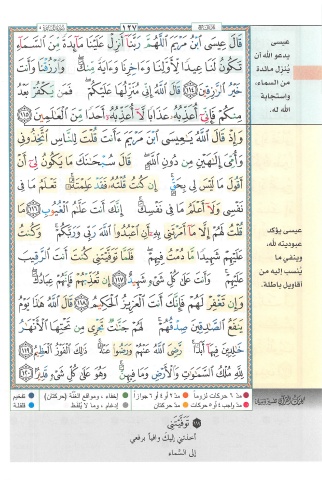 ١٢٧
قَالَ عِيسَى ٱبۡنُ مَرۡيَمَ ٱللَّهُمَّ رَبَّنَآ أَنزِلۡ عَلَيۡنَا مَآئِدَةٗ مِّنَ ٱلسَّمَآءِ
تَكُونُ لَنَا عِيدٗا لِّأَوَّلِنَا وَءَاخِرِنَا وَءَايَةٗ مِّنكَۖ وَٱرۡزُقۡنَا وَأَنتَ
خَيۡرُ ٱلرَّٰزِقِينَ ١١٤ قَالَ ٱللَّهُ إِنِّي مُنَزِّلُهَا عَلَيۡكُمۡۖ فَمَن يَكۡفُرۡ بَعۡدُ
مِنكُمۡ فَإِنِّيٓ أُعَذِّبُهُۥ عَذَابٗا لَّآ أُعَذِّبُهُۥٓ أَحَدٗا مِّنَ ٱلۡعَٰلَمِينَ ١١٥
وَإِذۡ قَالَ ٱللَّهُ يَٰعِيسَى ٱبۡنَ مَرۡيَمَ ءَأَنتَ قُلۡتَ لِلنَّاسِ ٱتَّخِذُونِي
وَأُمِّيَ إِلَٰهَيۡنِ مِن دُونِ ٱللَّهِۖ قَالَ سُبۡحَٰنَكَ مَا يَكُونُ لِيٓ أَنۡ
أَقُولَ مَا لَيۡسَ لِي بِحَقٍّۚ إِن كُنتُ قُلۡتُهُۥ فَقَدۡ عَلِمۡتَهُۥۚ تَعۡلَمُ مَا فِي
نَفۡسِي وَلَآ أَعۡلَمُ مَا فِي نَفۡسِكَۚ إِنَّكَ أَنتَ عَلَّٰمُ ٱلۡغُيُوبِ ١١٦ مَا
قُلۡتُ لَهُمۡ إِلَّا مَآ أَمَرۡتَنِي بِهِۦٓ أَنِ ٱعۡبُدُواْ ٱللَّهَ رَبِّي وَرَبَّكُمۡۚ وَكُنتُ
عَلَيۡهِمۡ شَهِيدٗا مَّا دُمۡتُ فِيهِمۡۖ فَلَمَّا تَوَفَّيۡتَنِي كُنتَ أَنتَ ٱلرَّقِيبَ
عَلَيۡهِمۡۚ وَأَنتَ عَلَىٰ كُلِّ شَيۡءٖ شَهِيدٌ ١١٧ إِن تُعَذِّبۡهُمۡ فَإِنَّهُمۡ عِبَادُكَۖ
وَإِن تَغۡفِرۡ لَهُمۡ فَإِنَّكَ أَنتَ ٱلۡعَزِيزُ ٱلۡحَكِيمُ ١١٨ قَالَ ٱللَّهُ هَٰذَا يَوۡمُ
يَنفَعُ ٱلصَّٰدِقِينَ صِدۡقُهُمۡۚ لَهُمۡ جَنَّٰتٞ تَجۡرِي مِن تَحۡتِهَا ٱلۡأَنۡهَٰرُ
خَٰلِدِينَ فِيهَآ أَبَدٗاۖ رَّضِيَ ٱللَّهُ عَنۡهُمۡ وَرَضُواْ عَنۡهُۚ ذَٰلِكَ ٱلۡفَوۡزُ ٱلۡعَظِيمُ ١١٩
لِلَّهِ مُلۡكُ ٱلسَّمَٰوَٰتِ وَٱلۡأَرۡضِ وَمَا فِيهِنَّۚ وَهُوَ عَلَىٰ كُلِّ شَيۡءٖ قَدِيرُۢ ١٢٠
عيسى
يدعو الله أن
يُنزل مائدة
من السماء،
واستجابة
الله له.
عيسى يؤكد
عبوديته لله،
وينفي ما
يُنسب إليه من
أقاويل باطلة.
مدّ ٦ حركات لزوماً
مدّ ٢ أو ٤ أو ٦ جوازاً
إخفاء، ومواقع الغنّة (حركتان)
تفخيم
مدّ واجب ٤ أو ٥ حركات
مدّ حركتان
إدغام، وما لا يُلفظ
قلقلة
تَوَفَّيْتَنِي
أخذتني إليك وافياً برفعي
إلى السَّماء